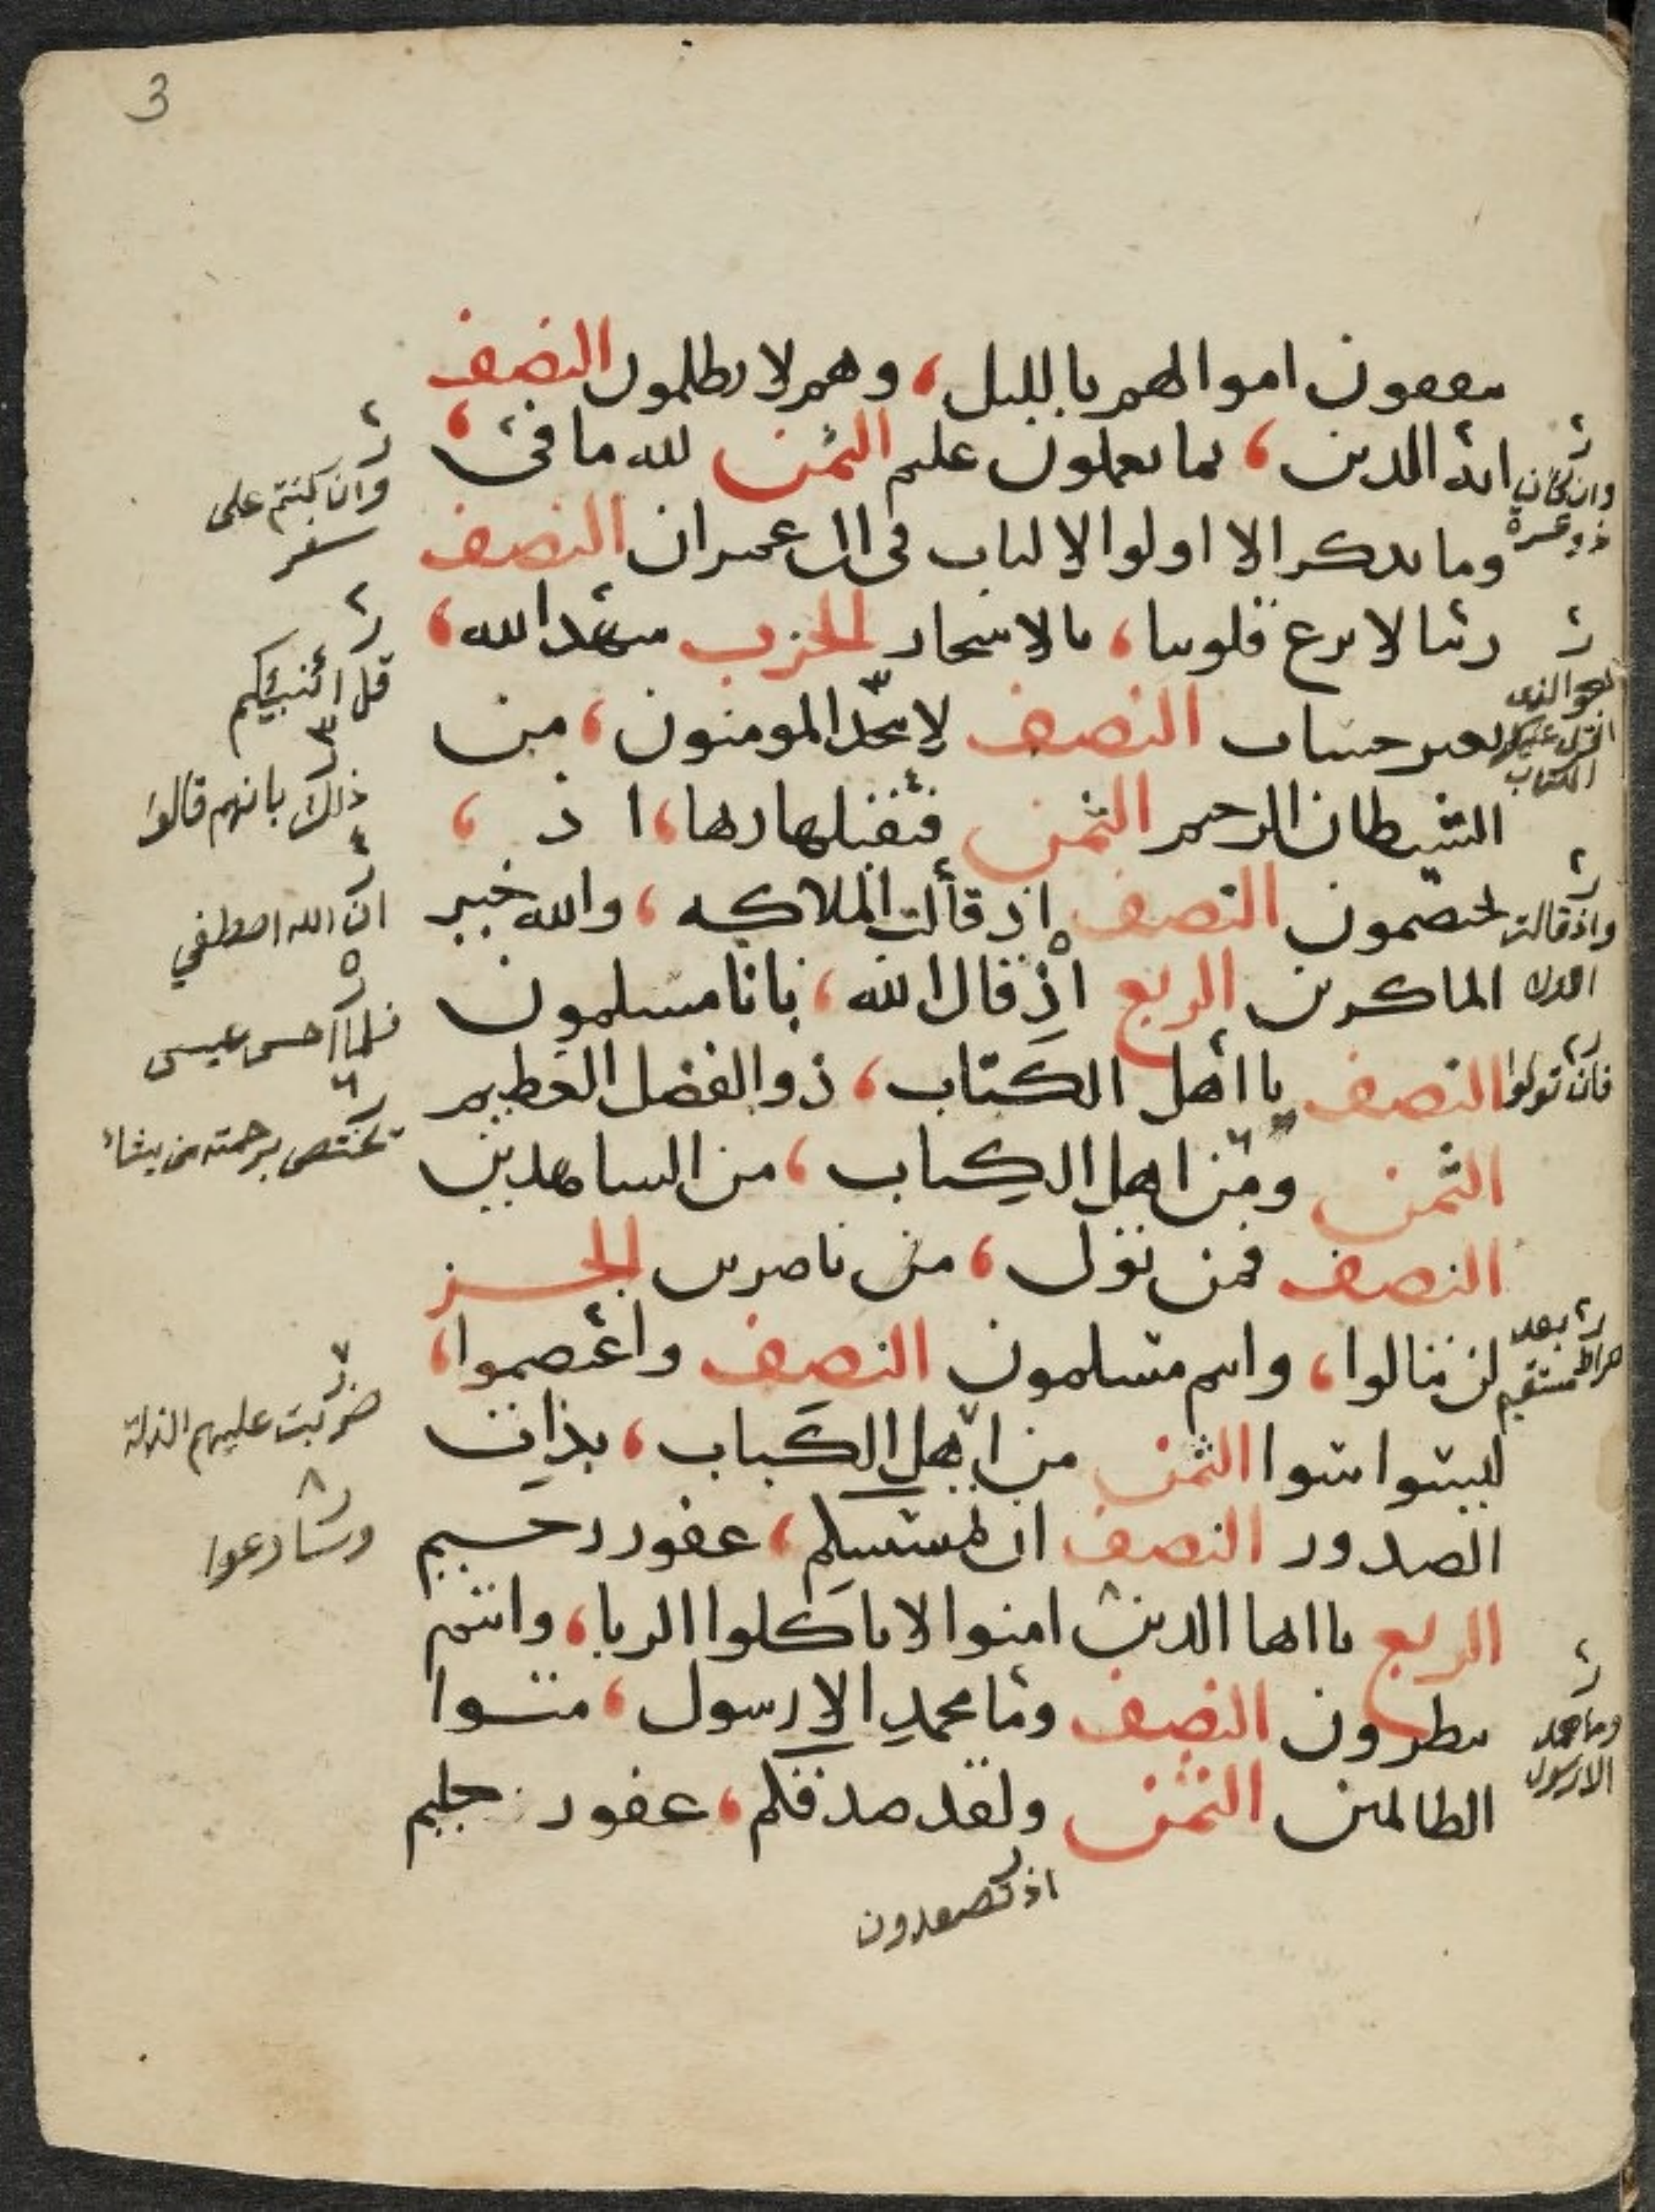 3
ينفقون اموالهم بالليل، وهم لا يظلمون النصف
اية الدين، بما تعملون عليم الثمن لله ما في،
وما يذكر الا اولوا الالباب في ال عمران النصف
ربنا لا تزغ قلوبنا، بالاسحار الحزب شهد الله،
بغير حساب النصف لا يتخذ المومنون، من
الشيطان الرجيم الثمن فتقبلها ربها، اذ،
يختصمون النصف اذ قالت الملائكه، والله خير
الماكرين الربع اذ قال الله، بانا مسلمون
النصف يا اهل الكتاب، ذو الفضل العظيم
الثمن ومن اهل الكتاب، من الشاهدين
النصف فمن تولى، من ناصرين الحز
لن تنالوا، وانتم مسلمون النصف واعتصموا،
ليسوا سوا الثمن من اهل الكتاب، بذات
الصدور النصف ان تمسسكم، غفور رحيم
الربع يا ايها الذين امنوا لا تاكلوا الربا، وانتم
تنظرون النصف وما محمد الا رسول، مثوا
الظالمين الثمن ولقد صدقكم، غفور حليم
اذ تصعدون
وان كان
ذو عسرة
هو الذي
انزل عليك
الكتاب
واذ قالت
فان تولوا
بعد
صراط مستقيم
وما محمد
الا رسول
وان كنتم على
سفر
قل اؤنبئكم
ذلك بانهم قالوا
ان الله اصطفي
فلما احس عيسى
يختص برحمته من يشاء
ضربت عليهم الذلة
وسارعوا